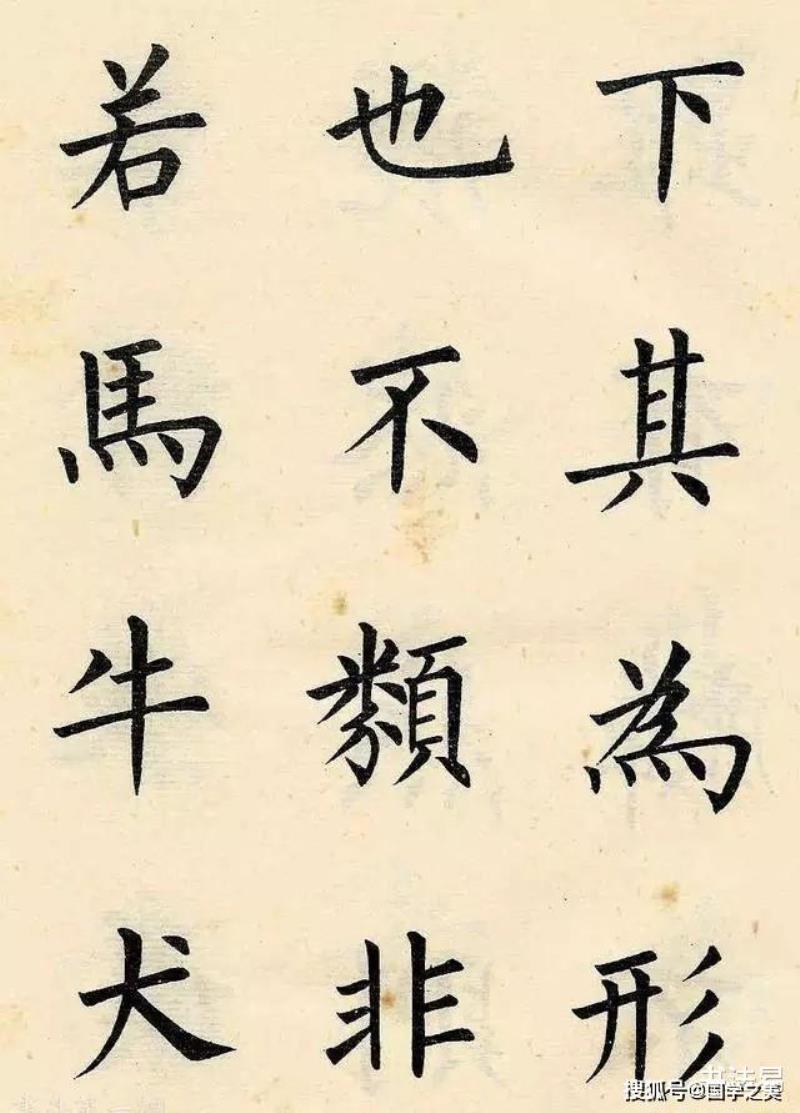 下其為形
也不類非
若馬牛犬
搜狐号@国学之美